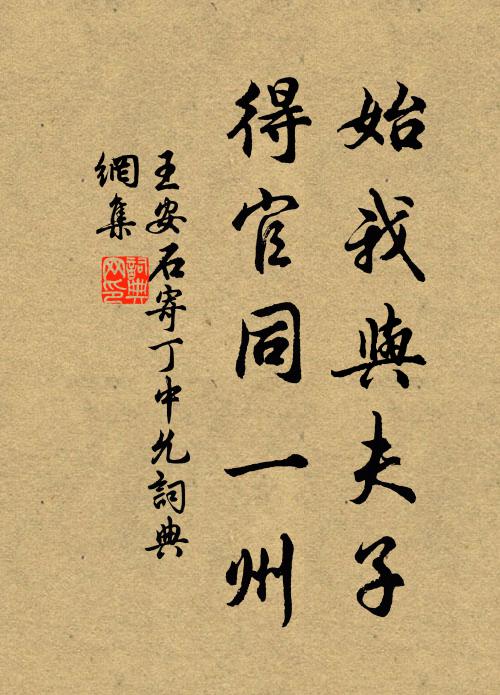 始我與夫子
得官同一州
王安石寄丁中允詞典
網集
詞典網印